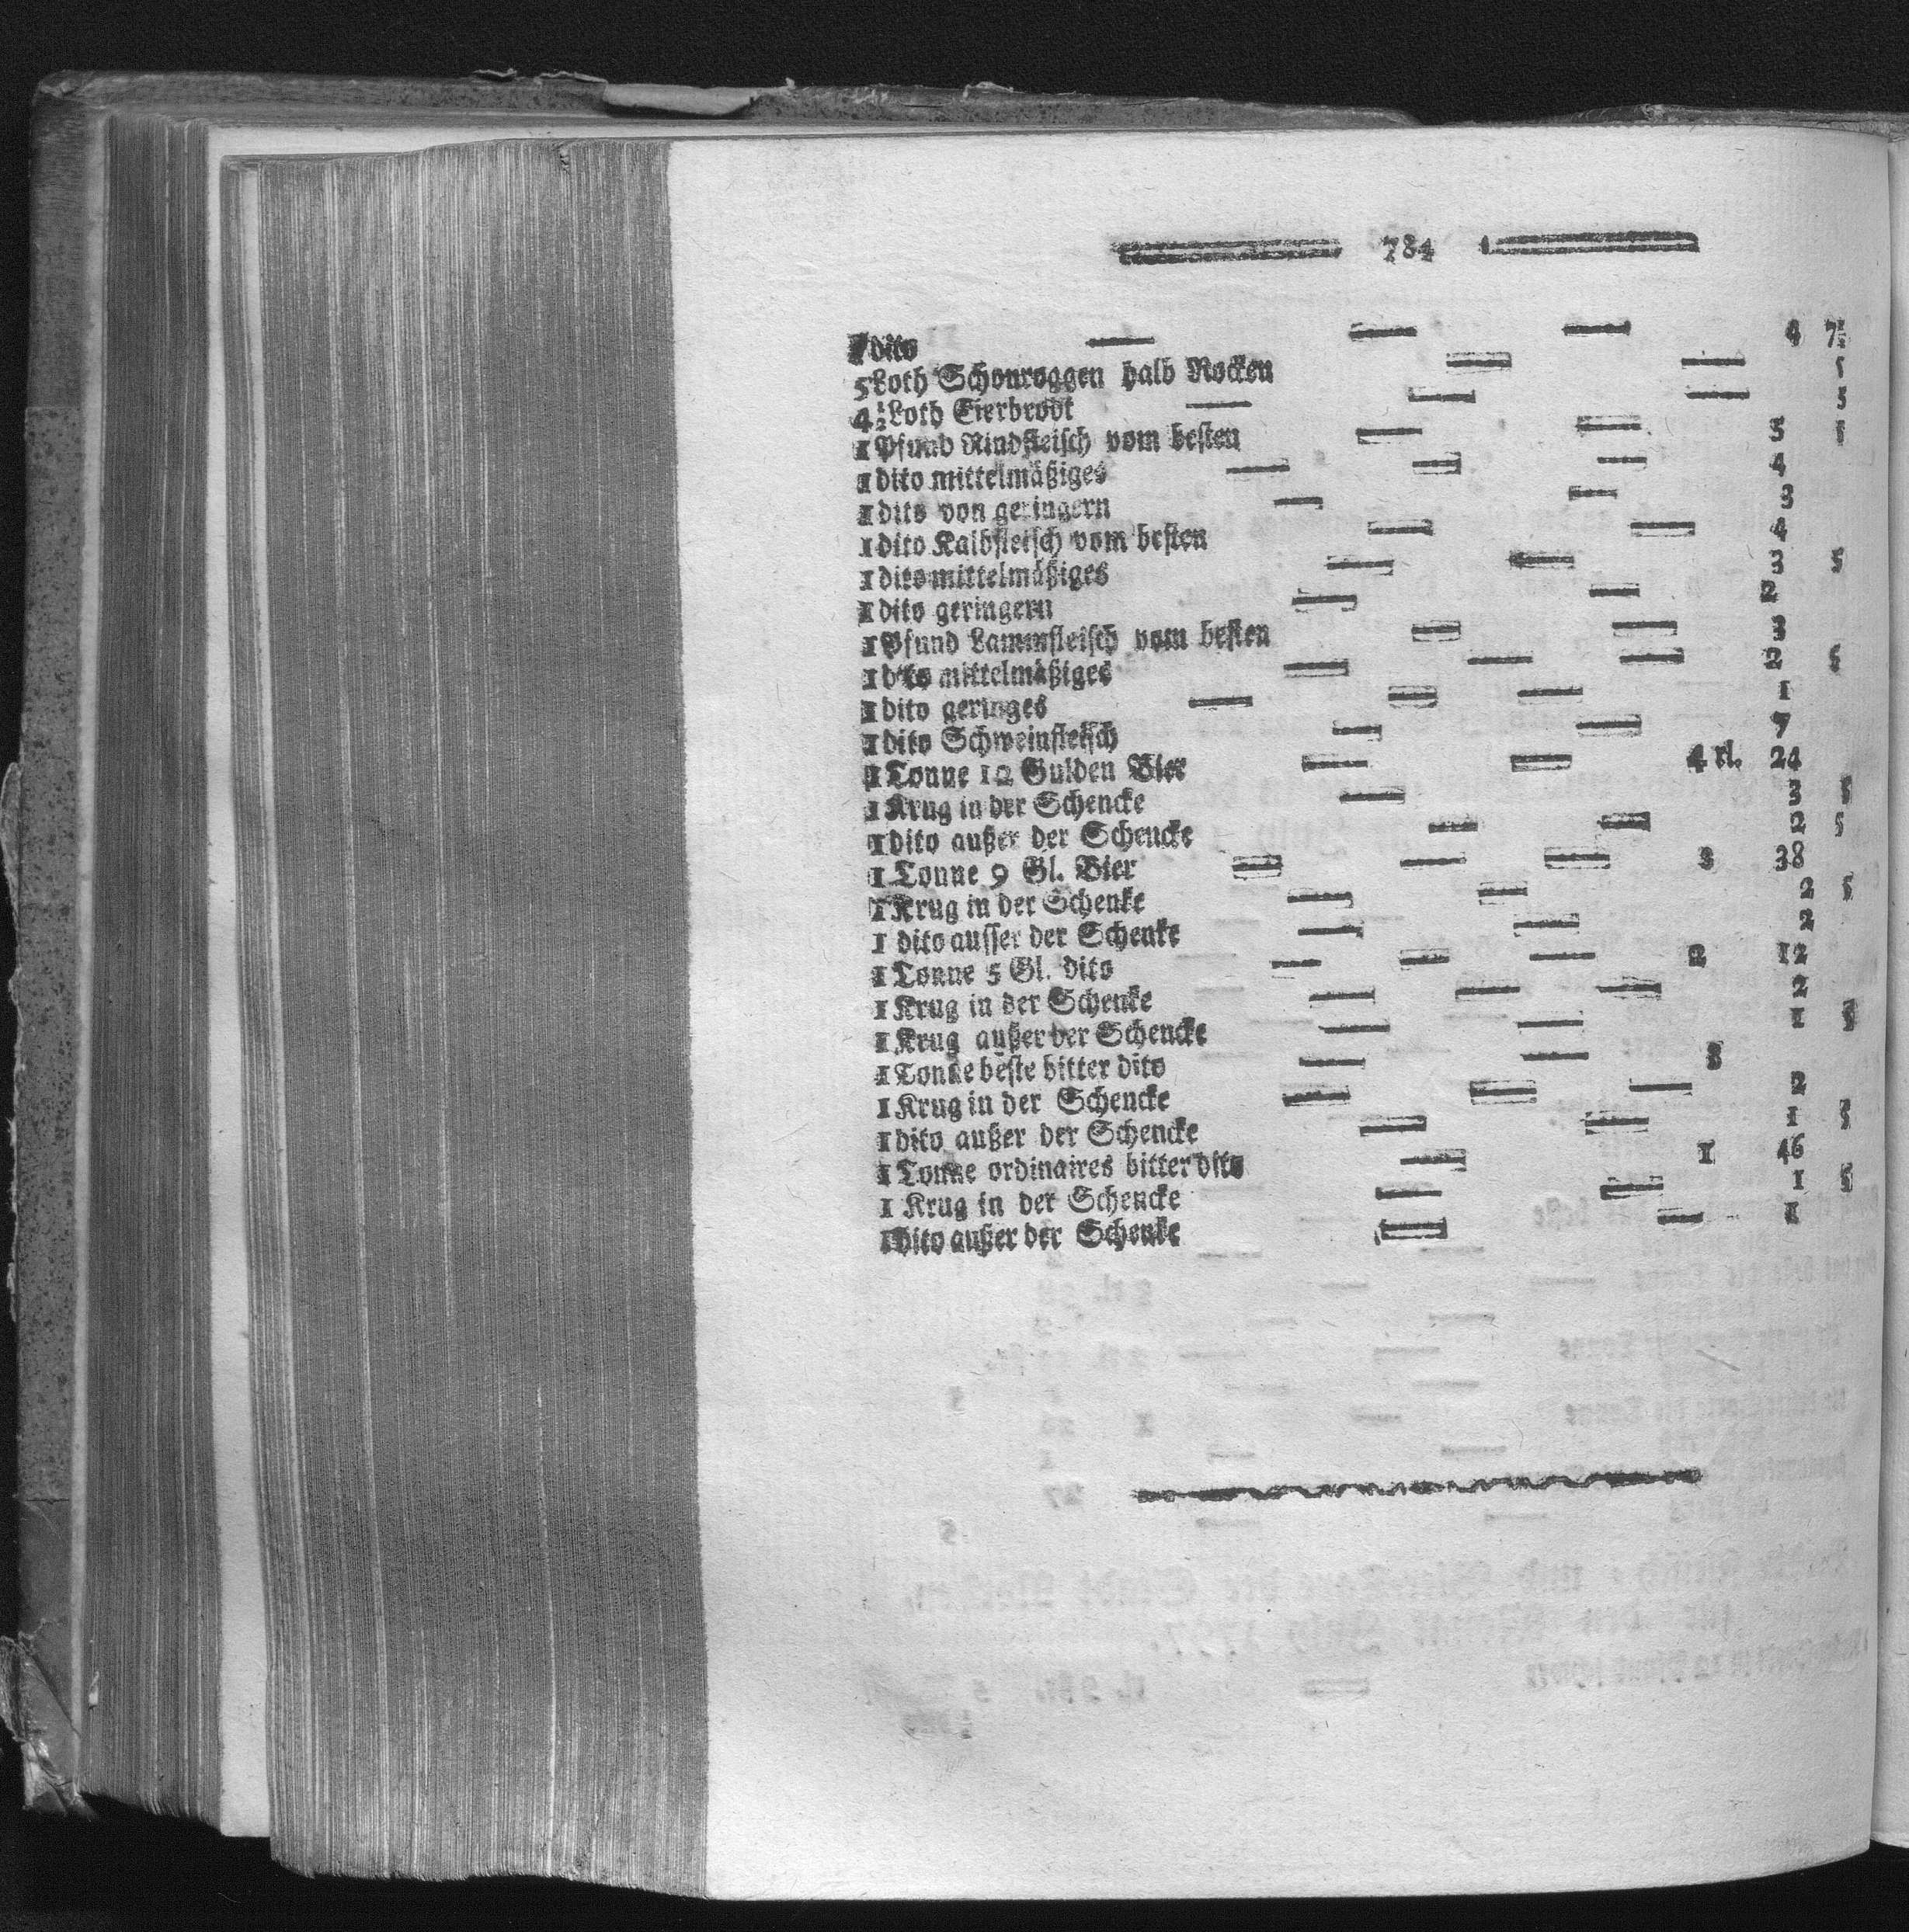 784
1 dito — — — 4 7½
5 Loth Schonroggen halb Rocken — — 5
4½ Loth Eierbrodt — — — 5
1 Pfund Rindfleisch vom besten — — 5 5
1 dito mittelmäßiges — — — 4
1 dito von geringern — — 3
1 dito Kalbfleisch vom besten — — 4
1 dito mittelmäßiges — — 3 5
1 dito geringern — — 2
1 Pfund Lammfleisch vom besten — — 3
1 dito mittelmäßiges — — — 2 5
1 dito geringes — — — 1
1 dito Schweinfleisch — — 7
1 Tonne 12 Gulden Bier — — 4 rl. 24
1 Krug in der Schencke — 3 5
1 dito außer der Schencke — — 2 5
1 Tonne 9 Gl. Bier — — — 3 38
1 Krug in der Schenke — — 2 5
1 dito ausser der Schenke — — 2
1 Tonne 5 Gl. dito — — — 2 12
1 Krug in der Schenke — — — 2
1 Krug außer der Schencke — — 1 5
1 Tonne beste bitter dito — — 3
1 Krug in der Schencke — — — 2
1 dito außer der Schencke — — 1 5
1 Tonne ordinaires bitter dito — 1 46
1 Krug in der Schencke — — 1 5
1 Dito außer der Schenke — — 1